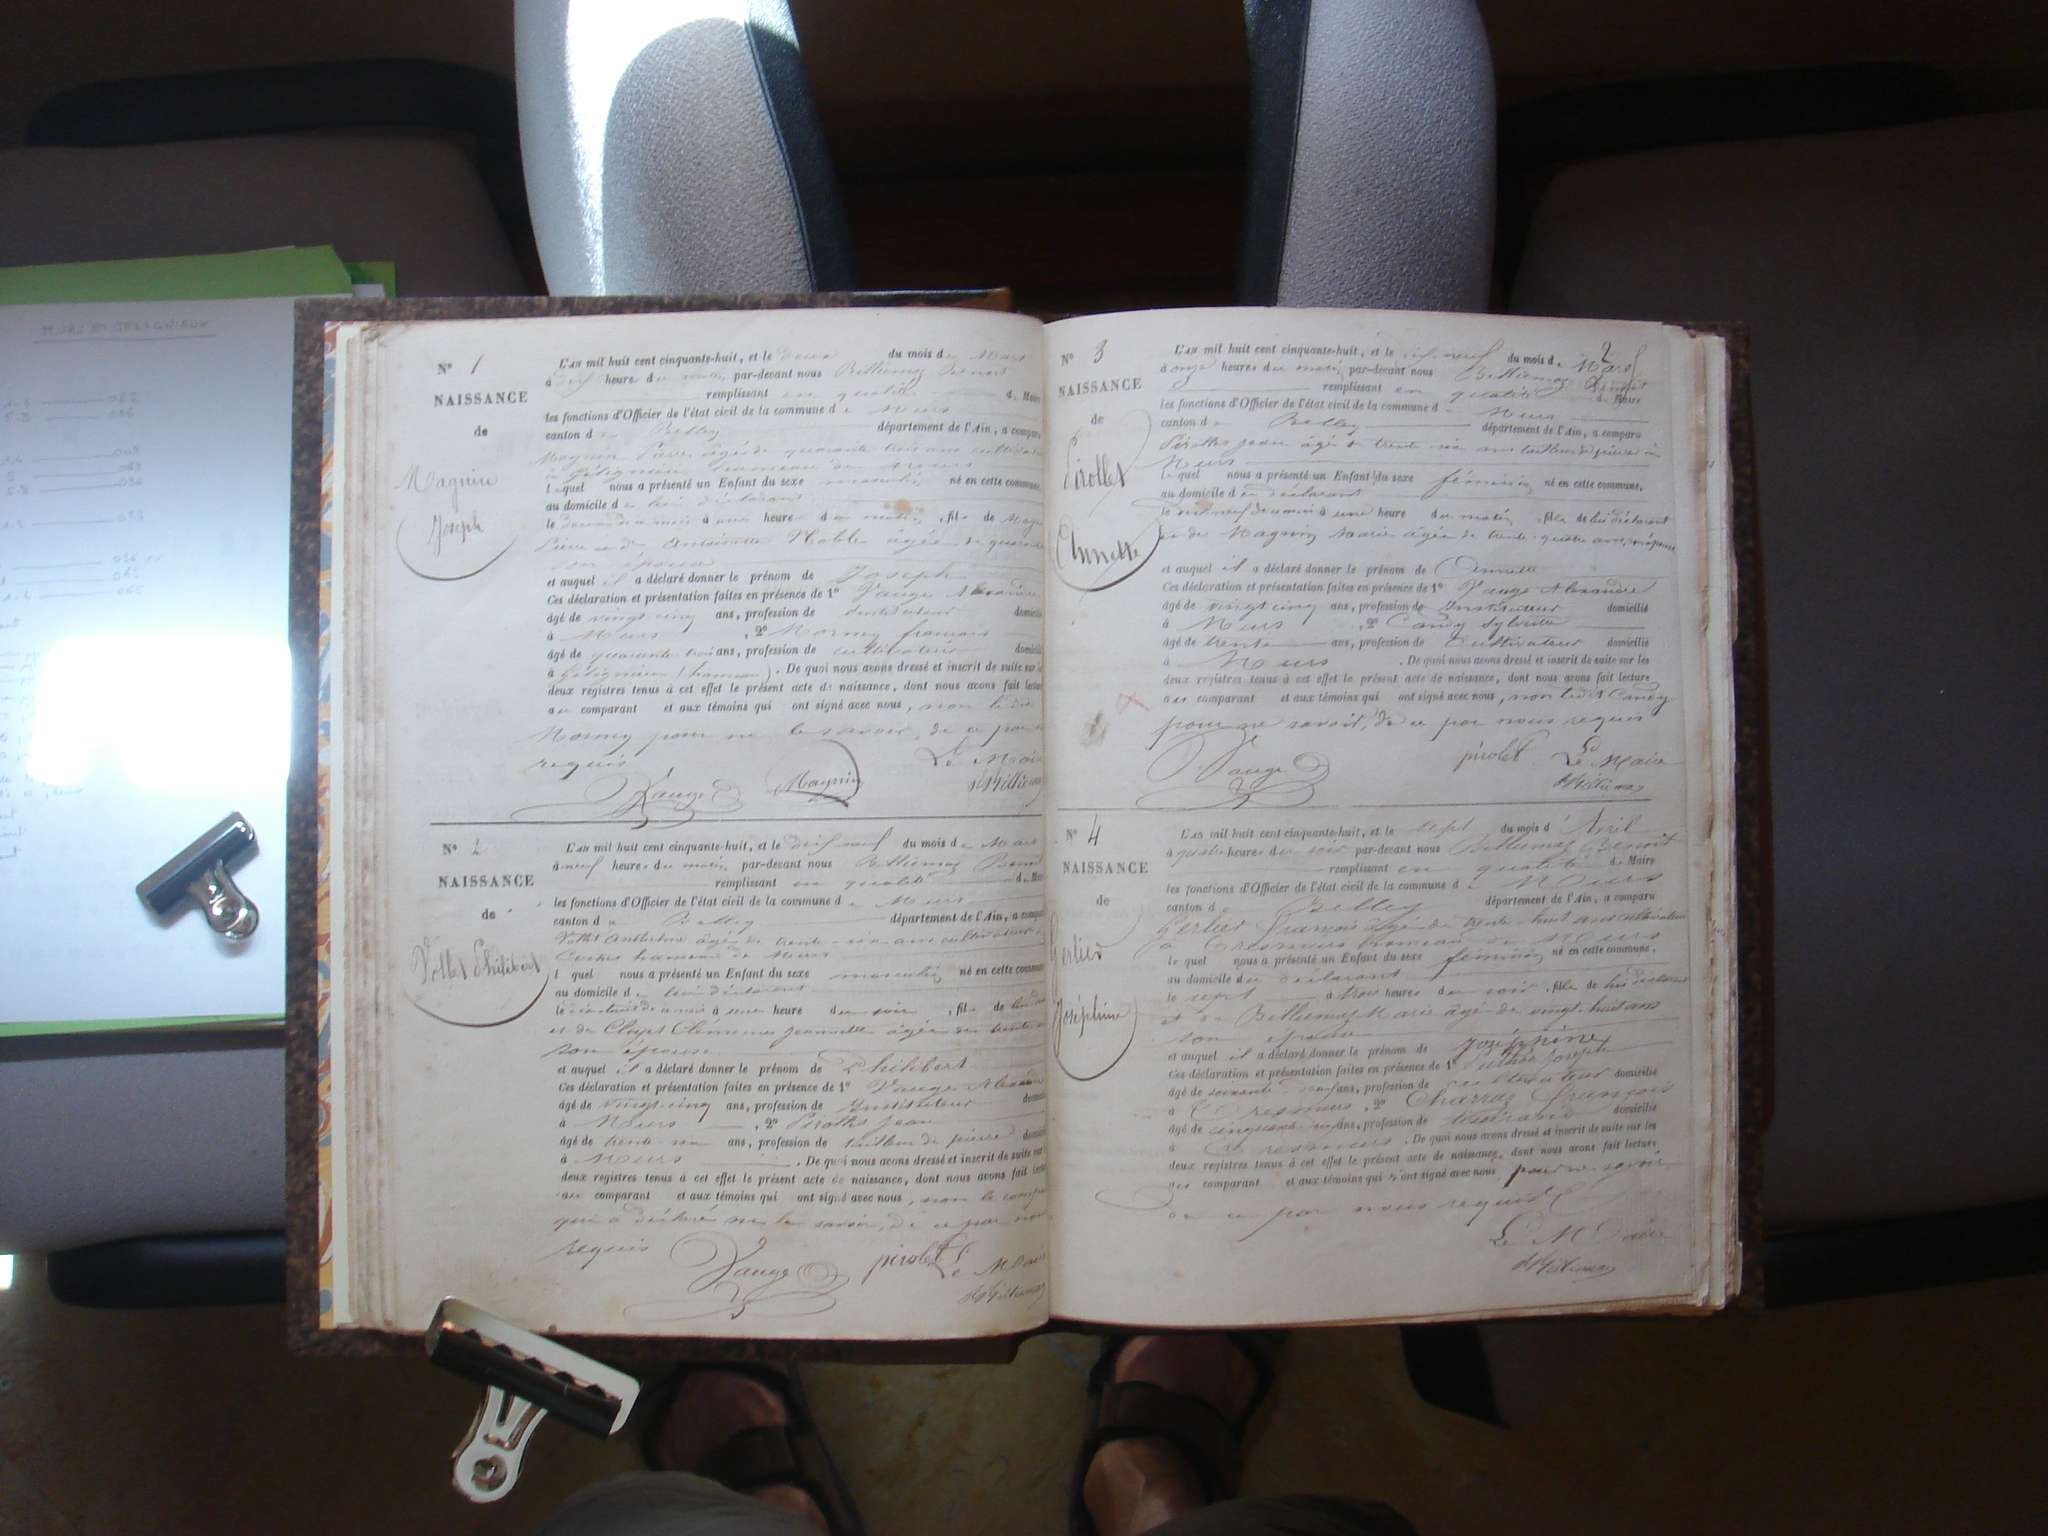 N° 1
NAISSANCE
de
Magnin
Joseph
L'AN mil huit cent cinquante-huit, et le deux du mois de Mars
à dix heure du matin, par-devant nous Béthemaz Benoit
remplissant en qualité de Maire
les fonctions d'Officier de l'état civil de la commune de Murs
canton de Belley département de l'Ain, a comparu
Magnin Pierre âgé de quarante trois ans cultivateur
à Gétignieu hameau de Murs
lequel nous a présenté un Enfant du sexe masculin né en cette commune,
au domicile de lui déclarant
le deux du mois à une heure du matin, fils de Magnin
Pierre et d' Antoinette Noble âgée de quarante
son épouse
et auquel il a déclaré donner le prénom de Joseph
Ces déclaration et présentation faites en présence de 1° Vauge Alexandre
âgé de vingt cinq ans, profession de Instituteur domicilié
à Murs, 2° Mornay françois
âgé de quarante trois ans, profession de cultivateur domicilié
à Gétignieu (hameau). De quoi nous avons dressé et inscrit de suite sur les
deux registres tenus à cet effet le présent acte de naissance, dont nous avons fait lecture
au comparant et aux témoins qui ont signé avec nous, non le dit
Mornay pour ne le savoir, de ce par
requis
Le Maire
Vauge Magnin
N° 2
NAISSANCE
de
Vollet Philibert
L'AN mil huit cent cinquante-huit, et le dix neuf du mois de Mars
à neuf heures du matin, par-devant nous Béthemaz Benoit
remplissant en qualité de Maire
les fonctions d'Officier de l'état civil de la commune de Murs
canton de Belley département de l'Ain, a comparu
Vollet Anthelme âgé de trente-six ans cultivateur à
hameau de Murs
lequel nous a présenté un Enfant du sexe masculin né en cette commune
au domicile de lui déclarant
le du mois à une heure du soir, fils de
et de Clémence Jeannette âgée de trente
son épouse
et auquel il a déclaré donner le prénom de Philibert
Ces déclaration et présentation faites en présence de 1° Vauge Alexandre
âgé de vingt-cinq ans, profession de Instituteur domicilié
à Murs, 2° Pirollet Jean
âgé de trente-six ans, profession de tailleur de pierre domicilié
à Murs. De quoi nous avons dressé et inscrit de suite sur les
deux registres tenus à cet effet le présent acte de naissance, dont nous avons fait lecture
au comparant et aux témoins qui ont signé avec nous, non le comparant
qui a déclaré ne le savoir, de ce par nous
requis
Vauge pirolet Le Maire
2
N° 3
NAISSANCE
de
Pirollet
Annette
L'AN mil huit cent cinquante-huit, et le dix-neuf du mois de Mars
à onze heures du matin, par-devant nous Béthemaz Benoit
remplissant en qualité de Maire
les fonctions d'Officier de l'état civil de la commune de Murs
canton de Belley département de l'Ain, a comparu
Pirollet Jean âgé de trente-six ans tailleur de pierre à
Murs
lequel nous a présenté un Enfant du sexe féminin né en cette commune,
au domicile du déclarant
le dix neuf du mois à une heure du matin, fille de lui déclarant
et de Magnin Marie âgée de trente-quatre ans, son épouse
et auquel il a déclaré donner le prénom de Annette
Ces déclaration et présentation faites en présence de 1° Vauge Alexandre
âgé de vingt cinq ans, profession de Instituteur domicilié
à Murs, 2° Candy Sylvestre
âgé de trente ans, profession de Cultivateur domicilié
à Murs. De quoi nous avons dressé et inscrit de suite sur les
deux registres tenus à cet effet le présent acte de naissance, dont nous avons fait lecture
au comparant et aux témoins qui ont signé avec nous, non ledit Candy
pour ne savoir, de ce par nous requis
Vauge pirolet Le Maire
N° 4
NAISSANCE
de
Gerlier
Joséphine
L'AN mil huit cent cinquante-huit, et le sept du mois d'Avril
à quatre heures du soir par-devant nous Béthemaz Benoit
remplissant en qualité de Maire
les fonctions d'Officier de l'état civil de la commune de Murs
canton de Belley département de l'Ain, a comparu
Gerlier François âgé de trente-huit ans cultivateur
à Cresmurs hameau de Murs
lequel nous a présenté un Enfant du sexe féminin né en cette commune.
au domicile du déclarant
le sept à trois heures du soir, fille de lui déclarant
et de Béthemaz Marie âgée de vingt-huit ans
son épouse
et auquel il a déclaré donner le prénom de Joséphine
Ces déclaration et présentation faites en présence de 1° Joseph
âgé de soixante ans, profession de cultivateur domicilié
à Cresmurs, 2° Charraz François
âgé de cinquante ans, profession de tisserand domicilié
à Cresmurs. De quoi nous avons dressé et inscrit de suite sur les
deux registres tenus à cet effet le présent acte de naissance, dont nous avons fait lecture
au comparant et aux témoins qui n'ont signé avec nous pour ne savoir
de ce par nous requis
Le Maire